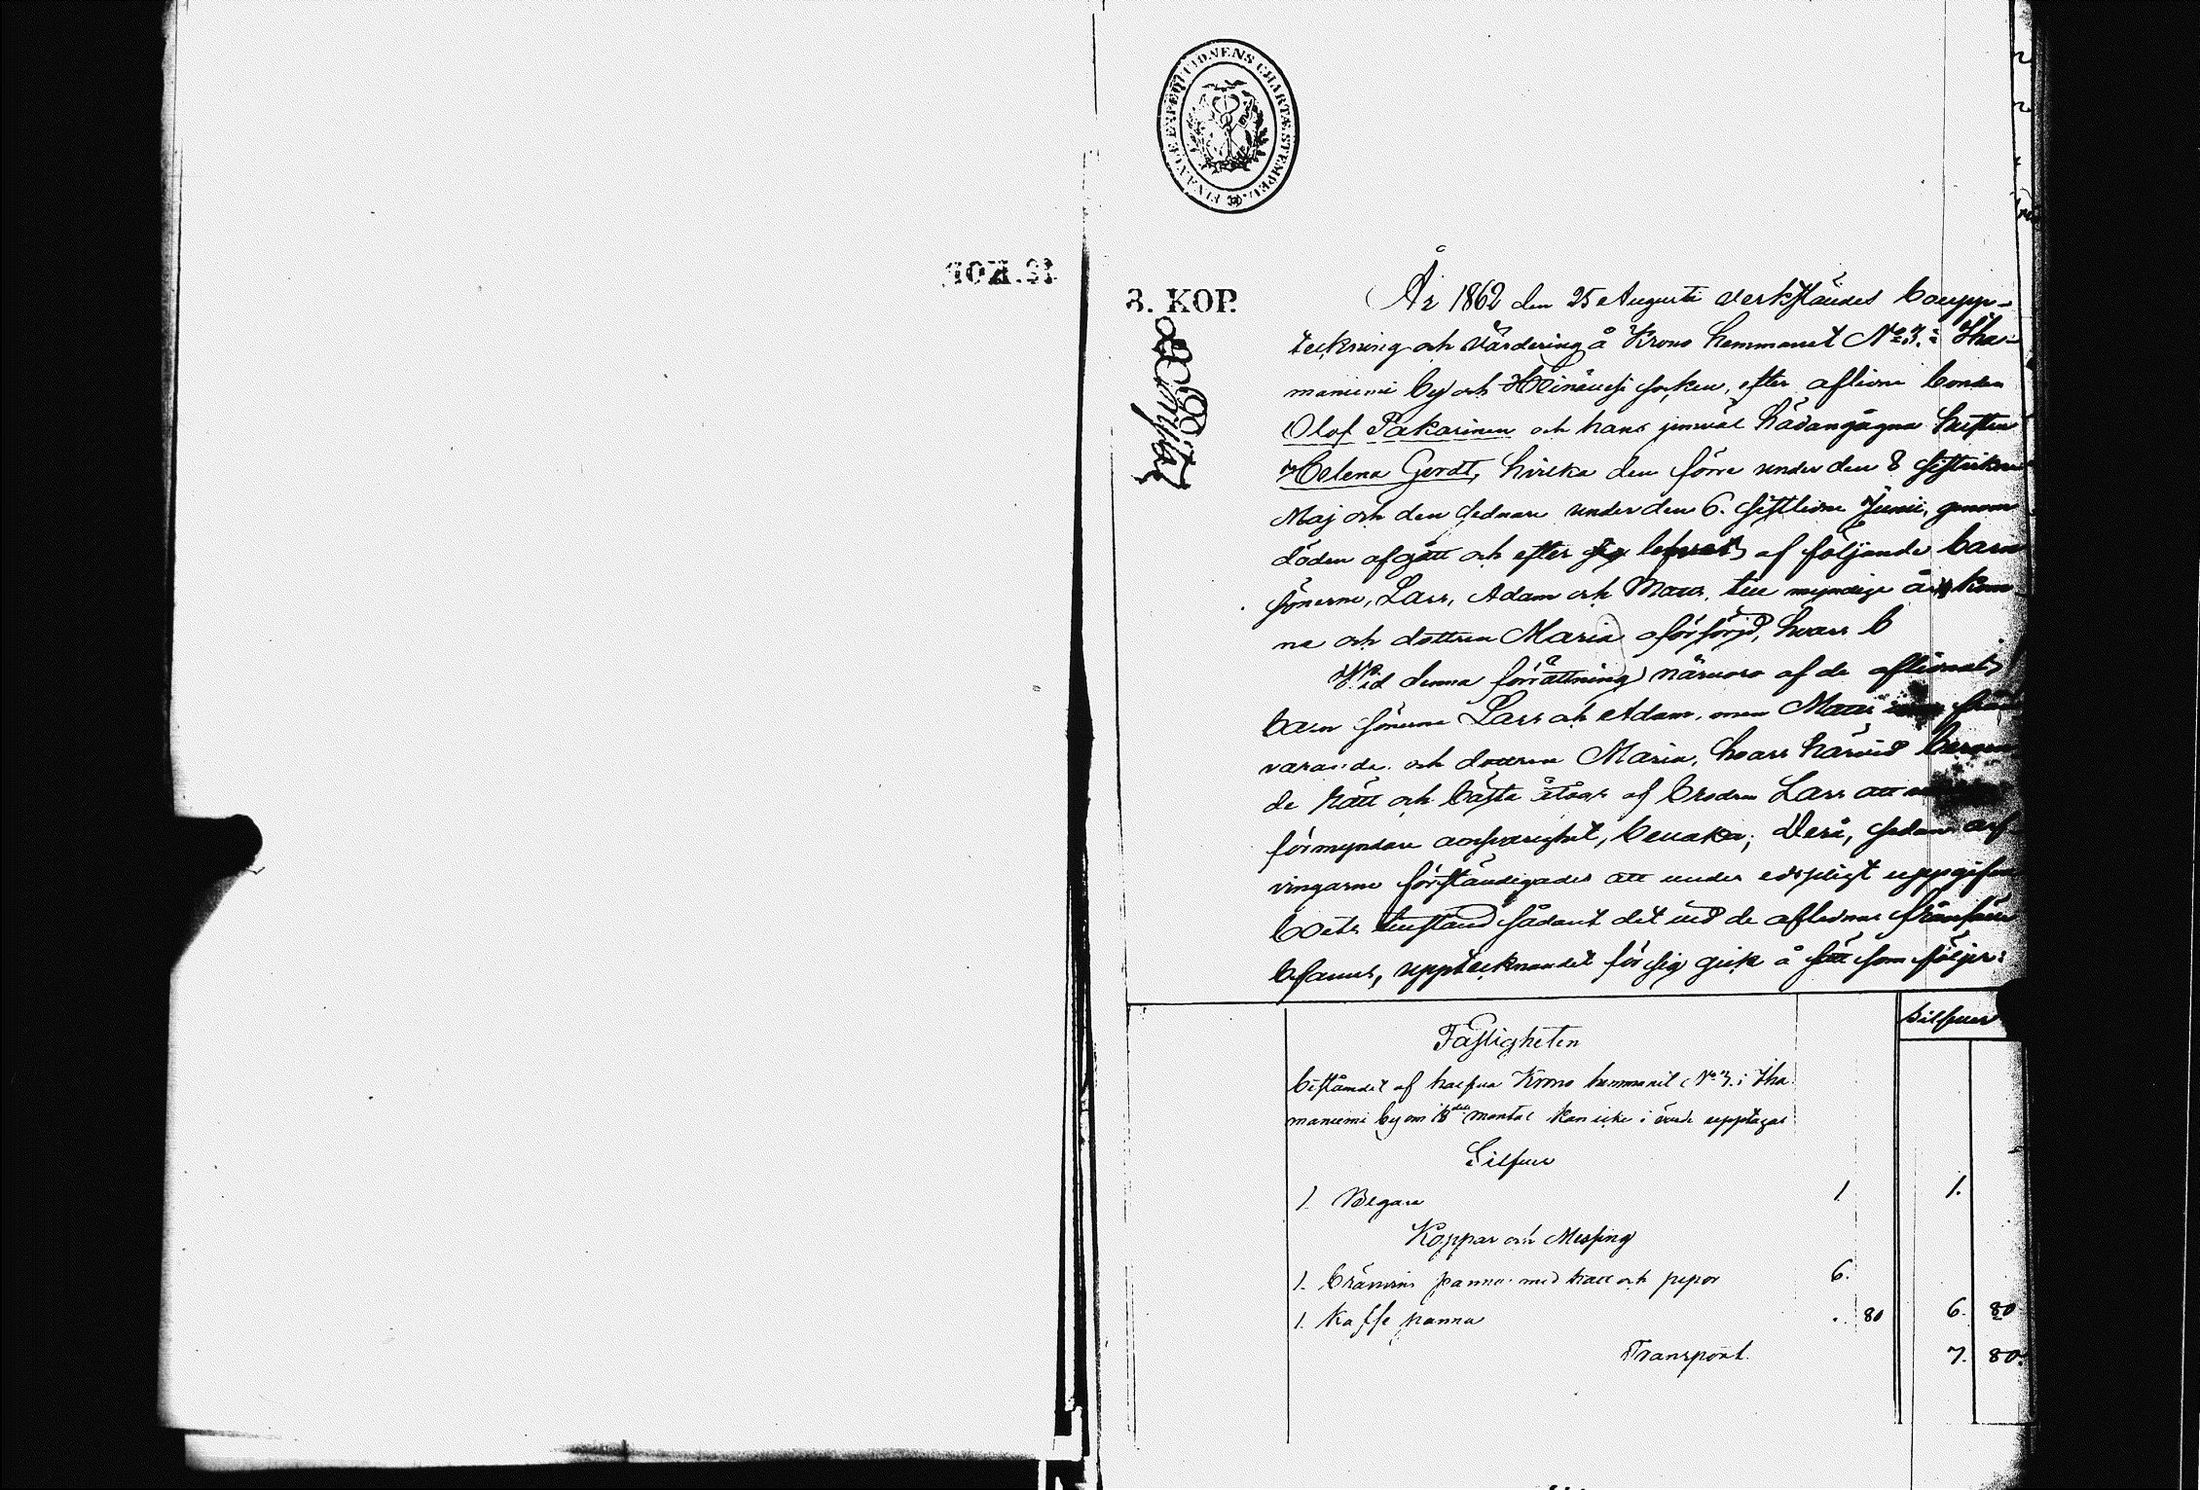 FINANCE EXPEDITIONENS CHARTÆ STEMPEL
3. KOP.
År 1862 den 25 Augusti verkställdes boupp-
teckning och värdering å Krono hemmanet No 3. i Iha-
maniemi by och Heinävesi socken, efter aflidne bonden
Olof Pakarinen och hans jemväl hädangågna hustru
Helena Gerdt, hvilka den förre under den 8 sistvikne
Maj och den sednare under den 6. sistlidne Junii, genom
döden afgått och efter sig lefnat af följande barn
sönerne, Lars, Adam och Mats, till myndige år kom-
ne och dottren Maria oförsörjd, hvars b
Wid denna förrättning närvoro af de aflidnas
barn sönerne Lars och Adam, men Mats från
varande och dottren Maria, hvars härvid beroen
de rätt och bästa åtogs af brodren Lars att
förmyndare ansvarighet, bevaka; Derå, sedan arf
vingarne förständigades att under edspligt uppgifva
boets tillstånd sådant det vid de aflidnas frånfälle
befanns, upptecknandet för sig gick å sätt som följer:
Silfver
Fastigheten
bestående af halfva Krono hemmanet No 3. i Iha
maniemi by om mantal kan icke i värde upptagas
Silfver
1. Begare 1 1.
Koppar och Messing
1. bränvins panna med hatt och pipor 6.
1. Kaffe panna . 80 6. 80
Transport. 7. 80.